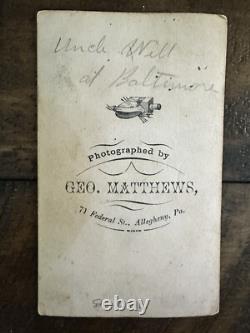 Uncle Will
at Baltimore
Photographed by
GEO. MATTHEWS,
71 Federal St., Allegheny, Pa.